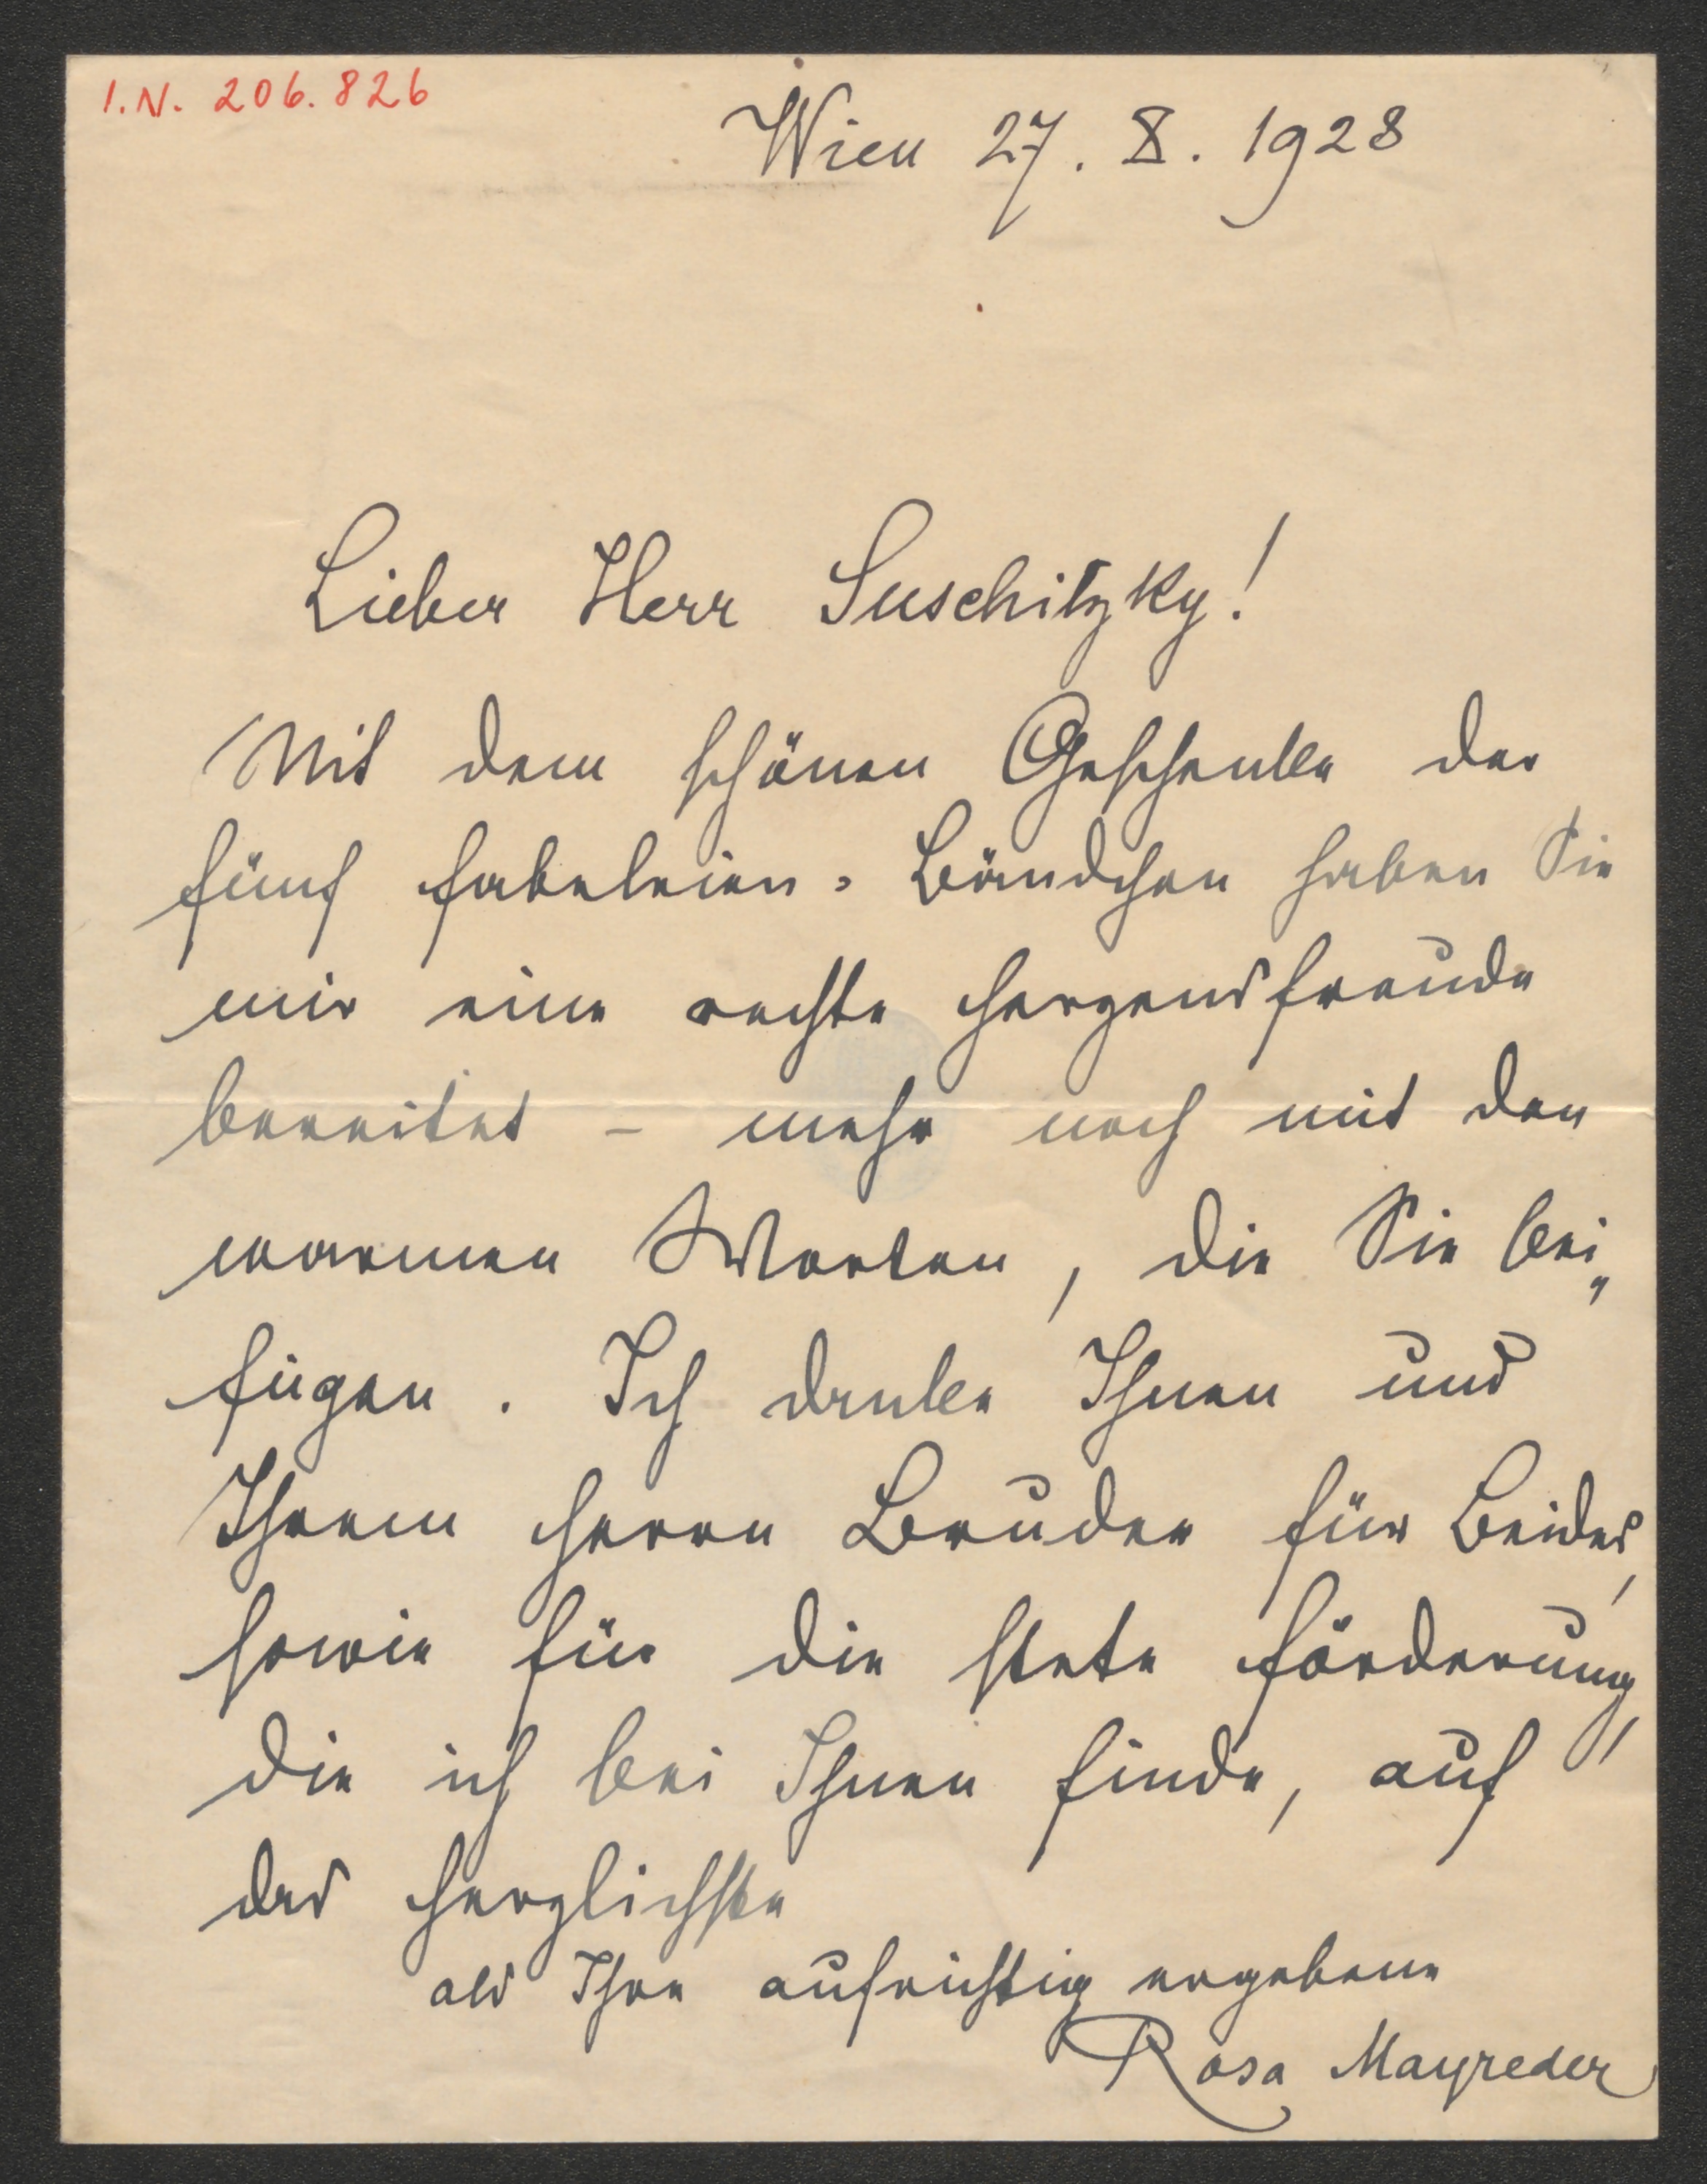 I.N. 206.826
Wien 27. X. 1928
Lieber Herr Suschitzky!
Mit dem schönen Geschenke der
fünf Fabeleien-Bändchen haben Sie
mir eine rechte Herzensfreude
bereitet – mehr noch mit den
warmen Worten, die Sie bei„
fügen. Ich danke Ihnen und
Ihrem Herrn Bruder für Beides,
sowie für die stete Förderung,
die ich bei Ihnen finde, auf
das herzlichste
als Ihre aufrichtig ergebene
Rosa Mayreder